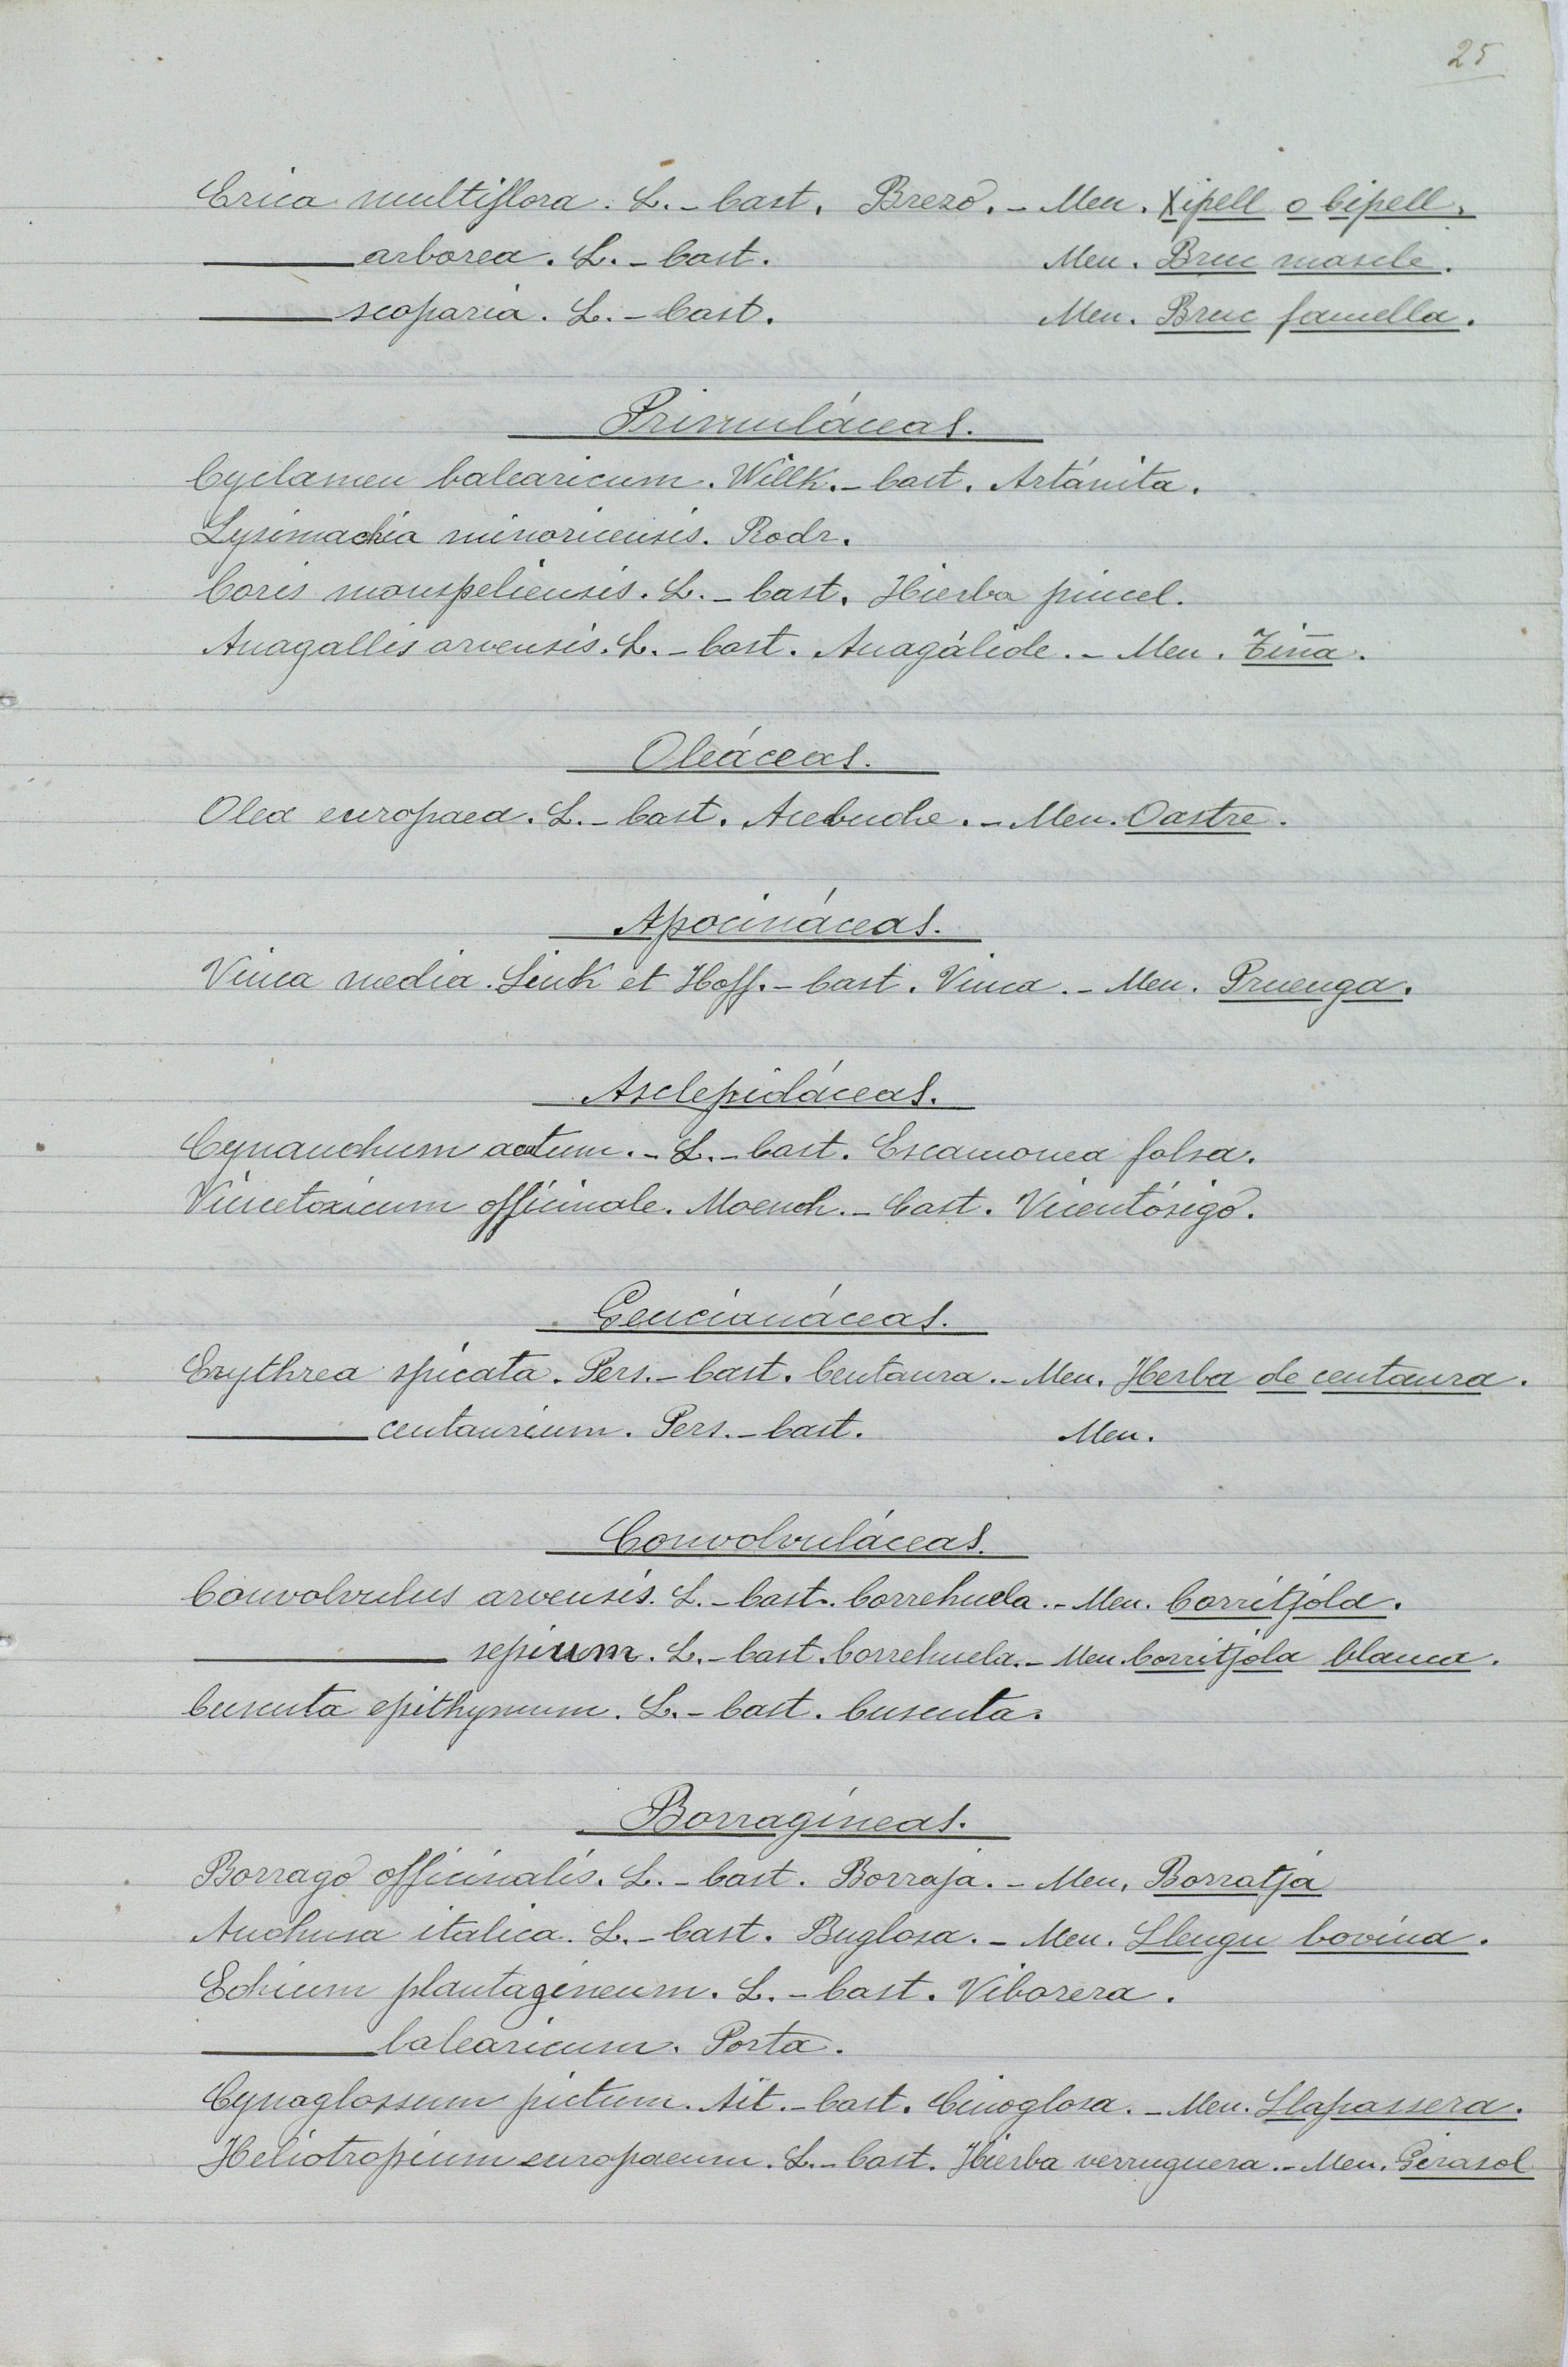 25
Erica multiflora. L. - Cast. Brezo. - Men. Xipell o Cipell.
______ arborea. L. - Cast. Men. Bruc mascle.
______ scoparia. L. - Cast. Men. Bruc famella.
Primuláceas.
Cyclamen balearicum. Willk. - Cast. Artánita.
Lysimachia minoricensis. Rodr.
Coris monspeliensis. L. - Cast. Hierba pincel.
Anagallis arvensis. L. - Cast. Anagálide. - Men. Tiña.
Oleáceas.
Olea europaea. L. - Cast. Acebuche. - Men. Oastre.
Apocináceas.
Vinca media. Link et Hoff. - Cast. Vinca. - Men. Pruenga.
Asclepidáceas.
Cynanchum acutum. - L. - Cast. Escamonea falsa.
Vincetoxicum officinale. Moench. - Cast. Vicentósigo.
Gencianáceas.
Erythrea spicata. Pers. - Cast. Centaura. - Men. Herba de centaura.
______ centaurium. Pers. - Cast. Men.
Convolvuláceas.
Convolvulus arvensis. L. - Cast. Correhuela. - Men. Corritjola.
______ sepium. L. - Cast. Correhuela. - Men. Corritjola blanca.
Cuscuta epithymum. L. - Cast. Cuscuta.
Borragíneas.
Borrago officinalis. L. - Cast. Borraja. - Men. Borratja
Anchusa italica. L. - Cast. Buglosa. - Men. Llengu bovina.
Echium plantagineum. L. - Cast. Viborera.
______ balearicum. Porta.
Cynoglossum pictum. Ait. - Cast. Cinoglosa. - Men. Llapassera.
Heliotropium europaeum. L. - Cast. Hierba verruguera. - Men. Girasol